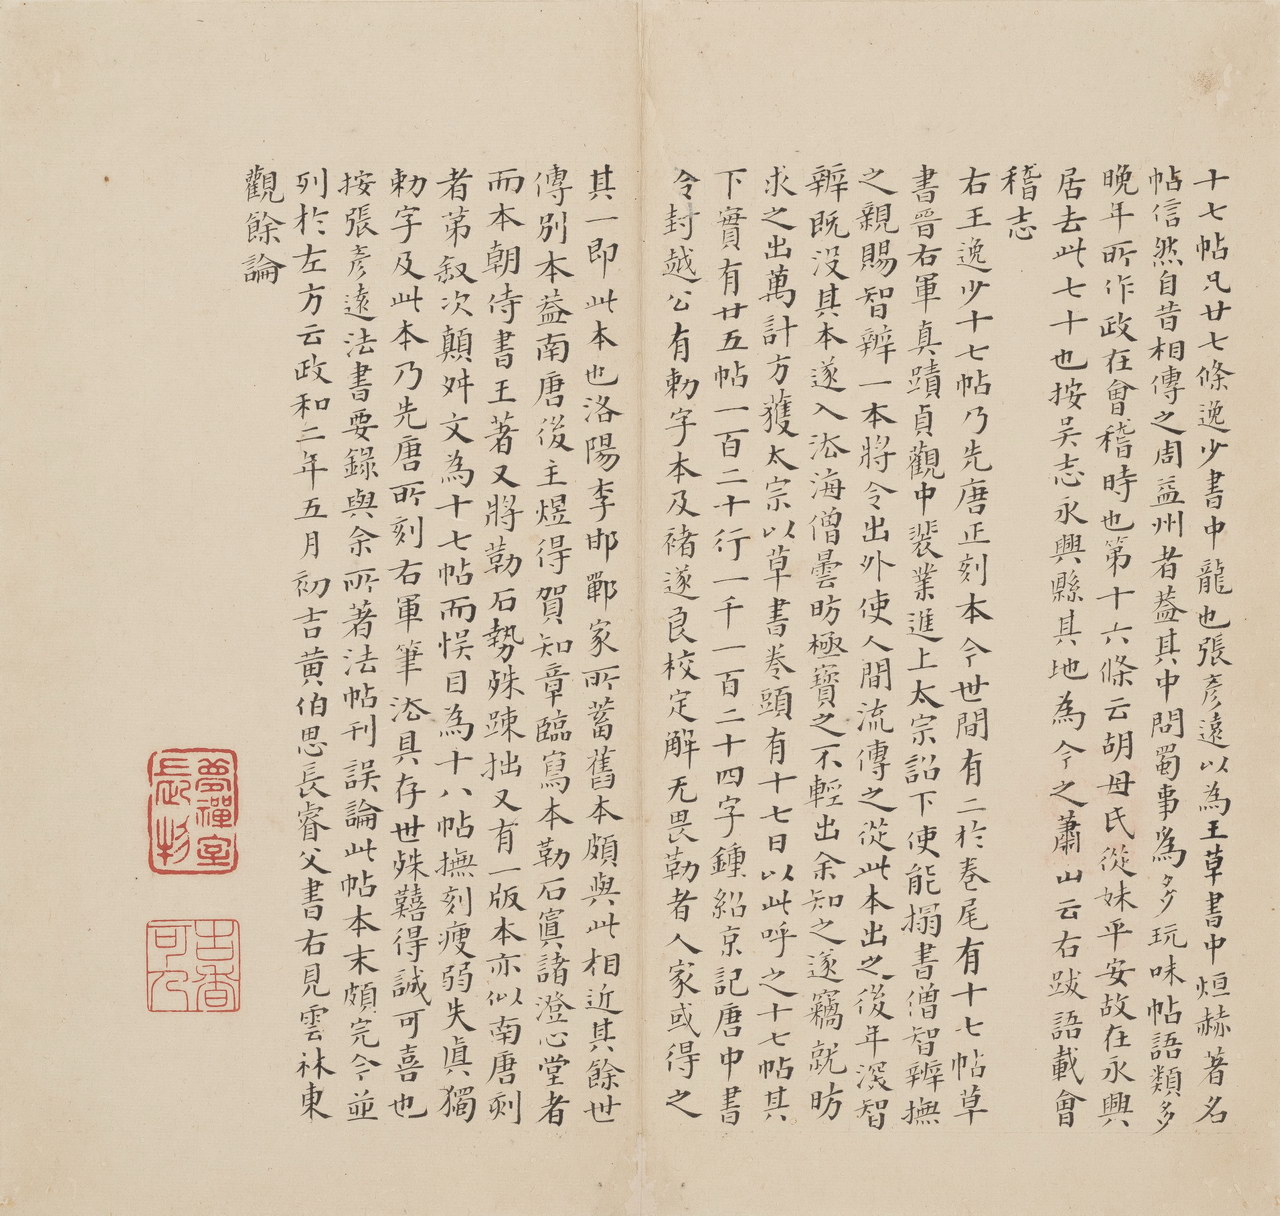 十七帖凡廿七條逸少書中龍也張彥遠以為王草書中烜赫著名
帖信然自昔相傳之周益州者葢其中問蜀事為多玩味帖語類多
晚年所作政在會稽時也第十六條云胡母氏從妹平安故在永興
居去此七十也按吴志永興縣其地為今之蕭山云右跋語載會
稽志
右王逸少十七帖乃先唐正刻本今世間有二於卷尾有十七帖草
書晉右軍真蹟貞觀中裴業進上太宗詔下使能搨書僧智辧撫
之親賜智辧一本將令出外使人間流傳之從此本出之後年深智
辧既没其本遂入法海僧曇昉極寶之不輕出余知之遂竊就昉
求之出萬計方獲太宗以草書卷頭有十七日以此呼之十七帖其
下實有廿五帖一百二十行一千一百二十四字鍾紹京記唐中書
令封越公有勅字本及褚遂良校定解无畏勒者人家或得之
其一即此本也洛陽李邯鄲家所蓄舊本頗與此相近其餘世
傳别本葢南唐後主煜得賀知章臨寫本勒石寘諸澄心堂者
而本朝侍書王著又將勒石勢殊踈拙又有一版本亦似南唐刻
者第叙次顛舛文為十七帖而悮目為十八帖撫刻瘦弱失眞獨
勅字及此本乃先唐所刻右軍筆法具存世殊囏得誠可喜也
按張彥遠法書要錄與余所著法帖刊誤論此帖本末頗完今並
列於左方云政和二年五月初吉黄伯思長睿父書右見雲林東
觀餘論
夢禪室
長物
古香
可人